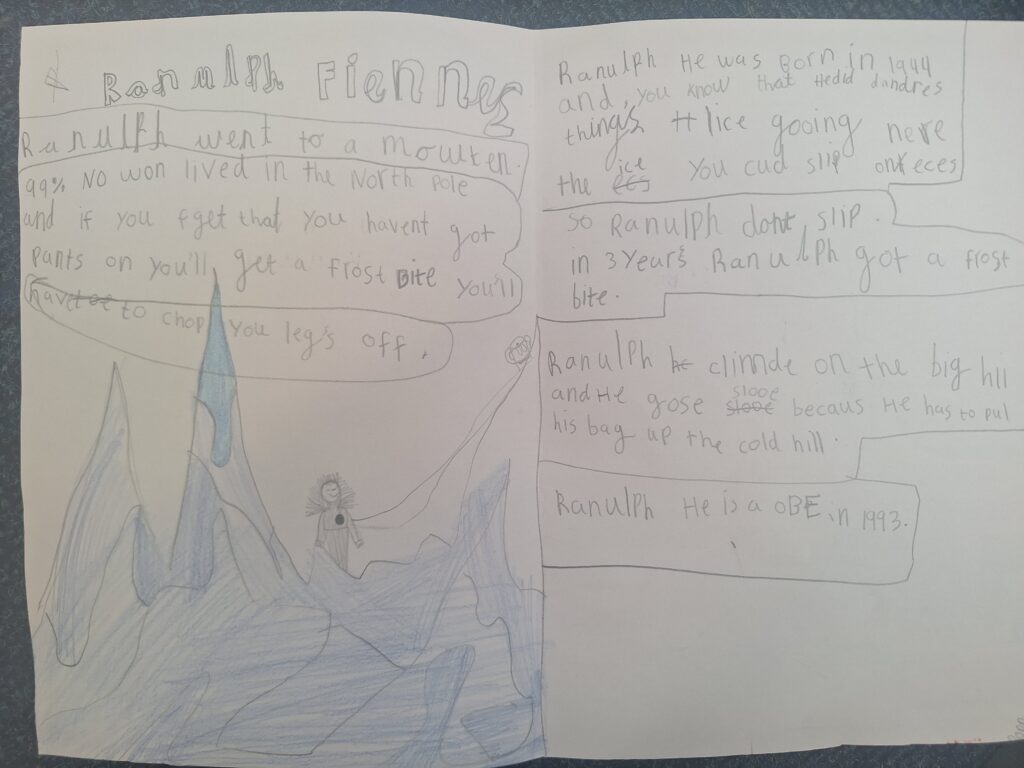 Ranulph Fiennes
Ranulph went to a moulten.
99% No won lived in the North Pole
and if you fget that you havent got
pants on you'll get a frost Bite you'll
have to chop you leg's off.
Ranulph He was Born in 1944
and, you know that Hedid dandres
thing's lice gooing nere
the ice You cud slip on eces
so Ranulph dont slip.
in 3 Year's Ranulph got a frost
bite.
Ranulph climde on the big hill
and He gose slooe becaus He has to pul
his bag up the cold hill.
Ranulph He is a OBE in 1993.